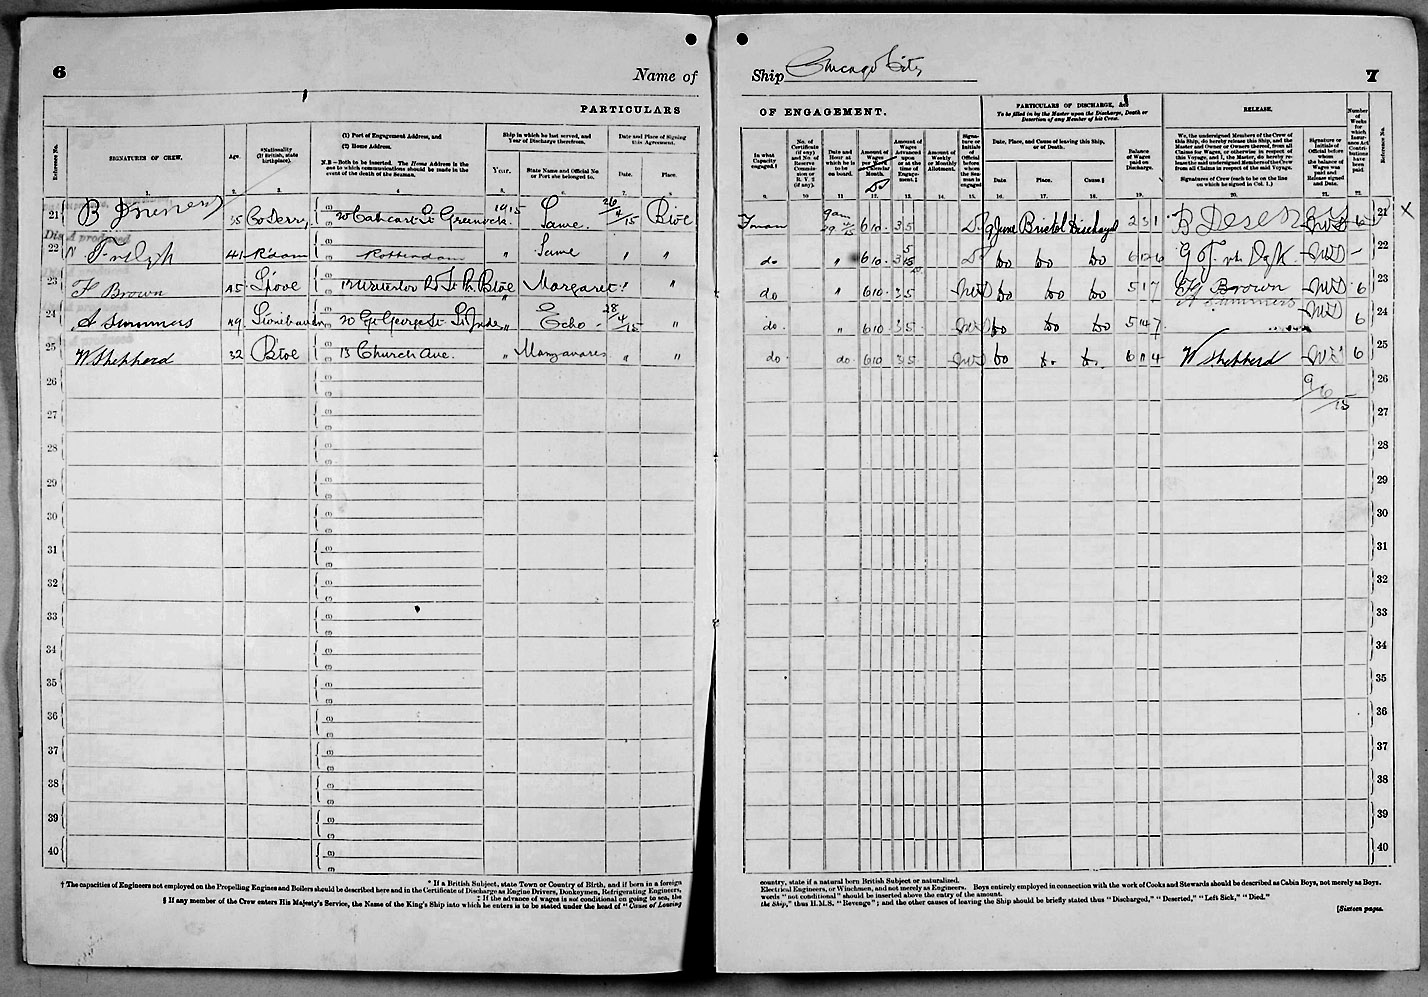 6
Name of
PARTICULARS
Reference No.
SIGNATURES OF CREW.
Age.
*Nationality
(If British, state
birthplace).
(1) Port of Engagement Address, and
(2) Home Address.
N.B—Both to be inserted. The Home Address is the
one to which communications should be made in the
event of the death of the Seaman.
Ship in which he last served, and
Year of Discharge therefrom.
Year.
State Name and Official No
or Port she belonged to.
Date and Place of Signing
this Agreement.
Date.
Place.
1. 2. 3. 4 5. 6. 7. 8
21 35 Co Derry, 20 Cathcart St Greenock. 1915 Same. 26/4/15 Btoe
22 41 R'dam Rotterdam " Same " "
23 H Brown 45 St Pl. Btoe " Margaret " "
24 A Summers 49 20 Gt George St St Judes " Echo 28/4/15 "
25 W Shepherd 32 Btoe 13 Church Ave. " Manzanares " "
26
27
28
29
30
31
32
33
34
35
36
37
38
39
40
* If a British Subject, state Town or Country of Birth, and if born in a foreign
† The capacities of Engineers not employed on the Propelling Engines and Boilers should be described here and in the Certificate of Discharge as Engine Drivers, Donkeymen, Refrigerating Engineers,
‡ If the advance of wages is not conditional on going to sea, the
§ If any member of the Crew enters His Majesty's Service, the Name of the King's Ship into which he enters is to be stated under the head of "Cause of Leaving
Ship Chicago City
7
OF ENGAGEMENT.
PARTICULARS OF DISCHARGE, &c
To be filled in by the Master upon the Discharge, Death or
Desertion of any Member of his Crew.
RELEASE.
In what
Capacity
engaged.†
No. of
Certificate
(if any)
and No. of
Reserve
Commis-
sion or
R. V. 2
(if any).
Date and
Hour at
which he is
to be
on board.
Amount of
Wages
per Week or
Calendar
Month.
Amount of
Wages
Advanced
upon
or at the
time of
Engage-
ment.‡
Amount of
Weekly
or Monthly
Allotment.
Signa-
ture or
Initials of
Official
before
whom
the Sea-
man is
engaged
Date, Place, and Cause of leaving this Ship,
or of Death.
Date
Place.
Cause.§
Balance
of Wages
paid on
Discharge.
We, the undersigned Members of the Crew of
this Ship, do hereby release the Ship, and the
Master and Owner or Owners thereof, from all
Claims for Wages, or otherwise in respect of
this Voyage, and I, the Master, do hereby re-
lease the said undersigned Members of the Crew
from all Claims in respect of the said Voyage.
Signatures of Crew (each to be on the line
on which he signed in Col. 1.)
Signature or
Initials of
Official before
whom
the balance of
Wages was
paid and
Release signed
and Date.
Number
of
Weeks
for
which
Insur-
ance Act
Contri-
butions
have
been
paid.
Reference No.
9. 10. 11 12. 13. 14. 15. 16. 17. 18. 19. 20. 21. 22.
Fman 9am 29/4/15 6 10 3 5 9 June Bristol Discharged 2 3 1 6 21 X
do " 6 10 do do do 22
do " 6 10 3 5 MD do do do 5 1 7 H Brown MD 6 23
do " 6 10 3 5 MD do do do 5 14 7 A Summers MD 6 24
do do 6 10 3 5 MD do do do 6 11 4 W Shepherd MD 6 25
9/6/15
26
27
28
29
30
31
32
33
34
35
36
37
38
39
40
country, state if a natural born British Subject or naturalized.
Electrical Engineers, or Winchmen, and not merely as Engineers. Boys entirely employed in connection with the work of Cooks and Stewards should be described as Cabin Boys, not merely as Boys.
words "not conditional" should be inserted above the entry of the amount.
the Ship," thus H.M.S. "Revenge"; and the other causes of leaving the Ship should be briefly stated thus "Discharged," "Deserted," "Left Sick," "Died."
[Sixteen pages.